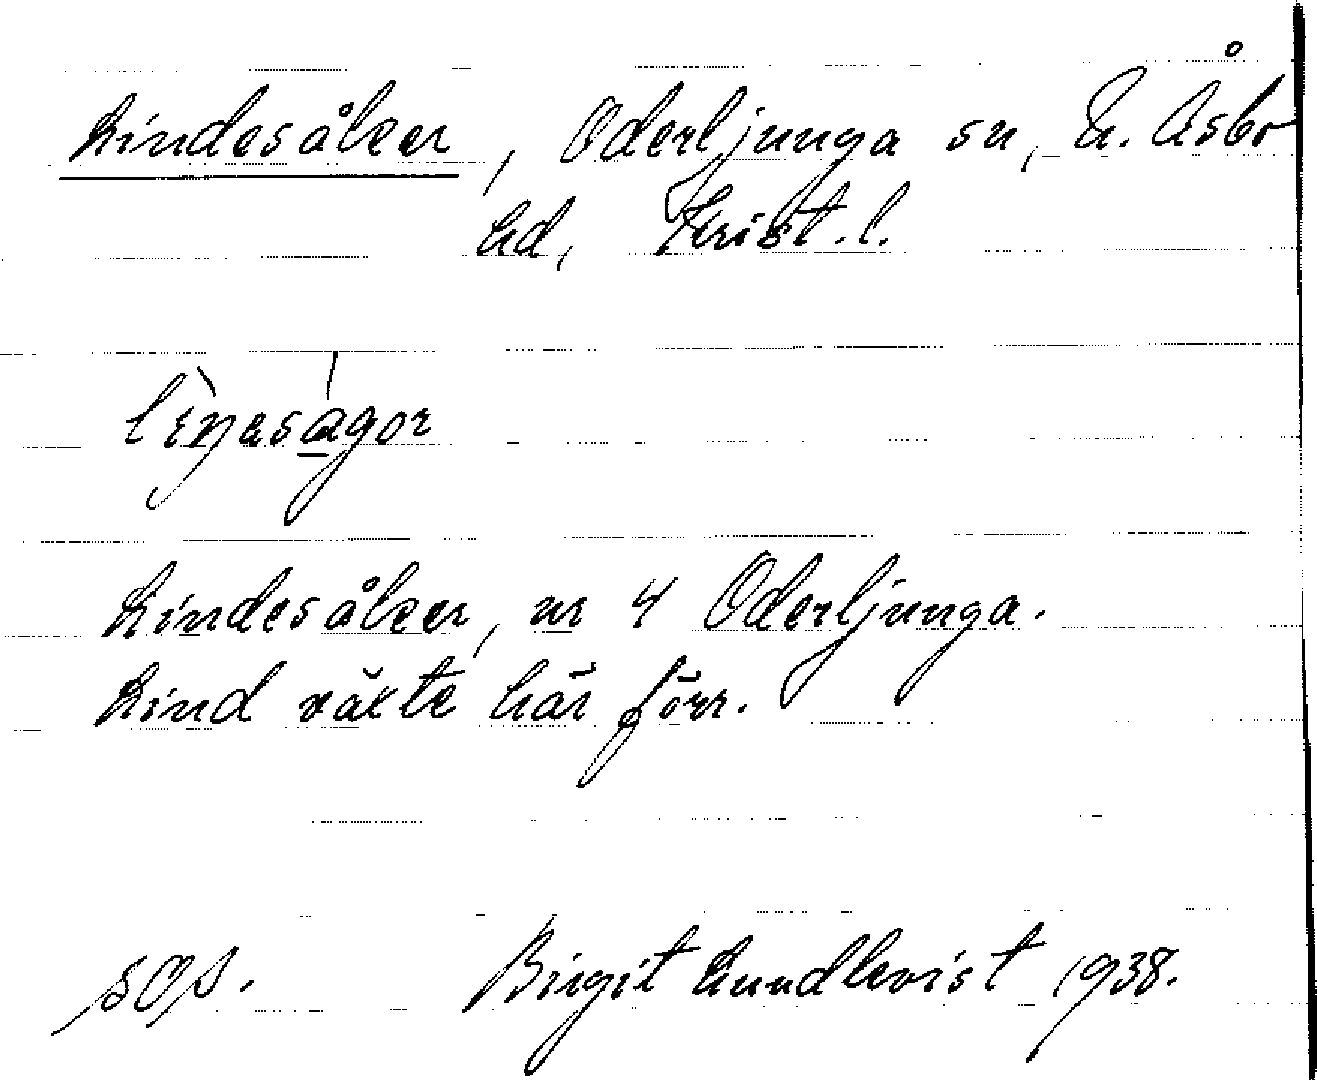 Lindesåker, Oderljunga sn, N. Åsbo
hd, Krist. l.
Lindesåker, nr 4 Oderljunga.
Lind växte här förr.
Birgit Lundkvist 1938.